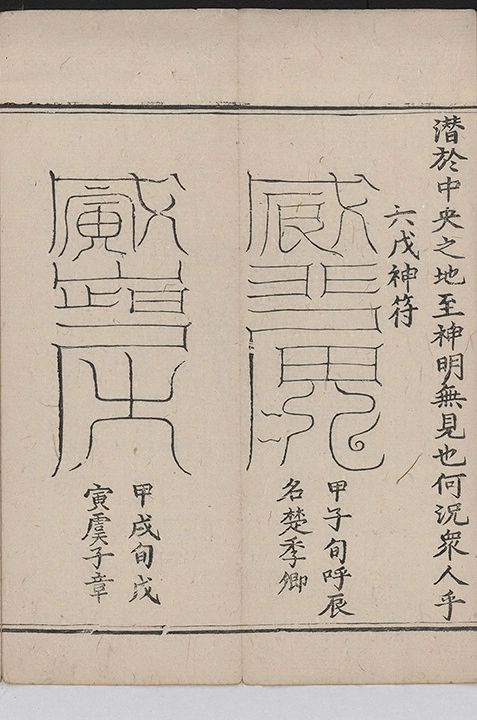 潛於中央之地至神明無見也何況衆人乎
六戊神符
甲子旬呼辰
名楚季卿
甲戌旬戊
寅虞子章